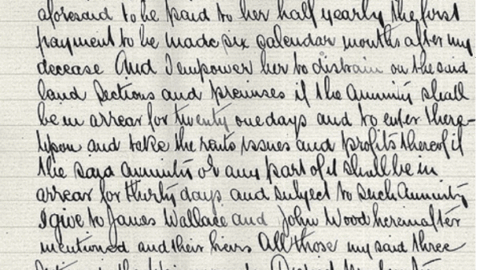 aforesaid to be paid to her half yearly the first
payment to be made six calendar months after my
decease And I empower her to distrain on the said
land Sections and premises if the Annuity shall
be in arrear for twenty one days and to enter there-
upon and take the rents issues and profits thereof if
the said annuity or any part of it shall be in
arrear for thirty days and subject to such Annuity
I give to James Wallace and John Wood hereinafter
mentioned and their heirs All those my said three
in the